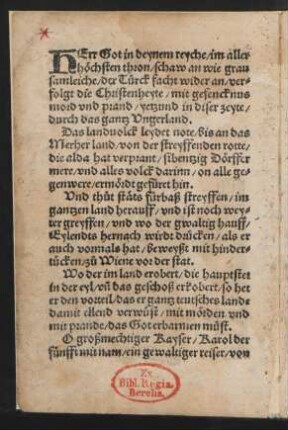 HErr Got in deynem reyche/im aller
höchsten thron/schaw an wie grau
samkeiche/der Türck facht wider an/ver-
folgt die Christenheyte/mit gefencknus
mord vnd prand/yetzund in diser zeyte/
durch das gantz Vngerland.
Das landuolck leydet note/bis an das
Merher land/von der streyffenden rotte/
die alda hat verprant/sibentzig Dörffer
mere/vnd alles volck darinn/on alle ge-
genwere/ermördt gefürt hin.
Vnd thůt stäts fürbaß streyffen/im
gantzen land herauff/vnd ist noch wey-
ter greyffen/vnd wo der gwaltig hauff/
Eylendts hernach wirdt drücken/als er
auch vormals hat/beweyßt mit hinder-
tücken/zů Wiene vor der stat.
Wo der im land erobert/die hauptstet
in der eyl/vñ das geschoß erkobert/so het
er den vorteil/das er gantz teutsches lande
damit ellend verwüst/mit mörden vnd
mit prande/das Got erbarmen müst.
O großmechtiger Kayser/Karol der
fünfft mit nam/ein gewaltiger reiser/von
Ex
Bibl. Regia
Berolin.